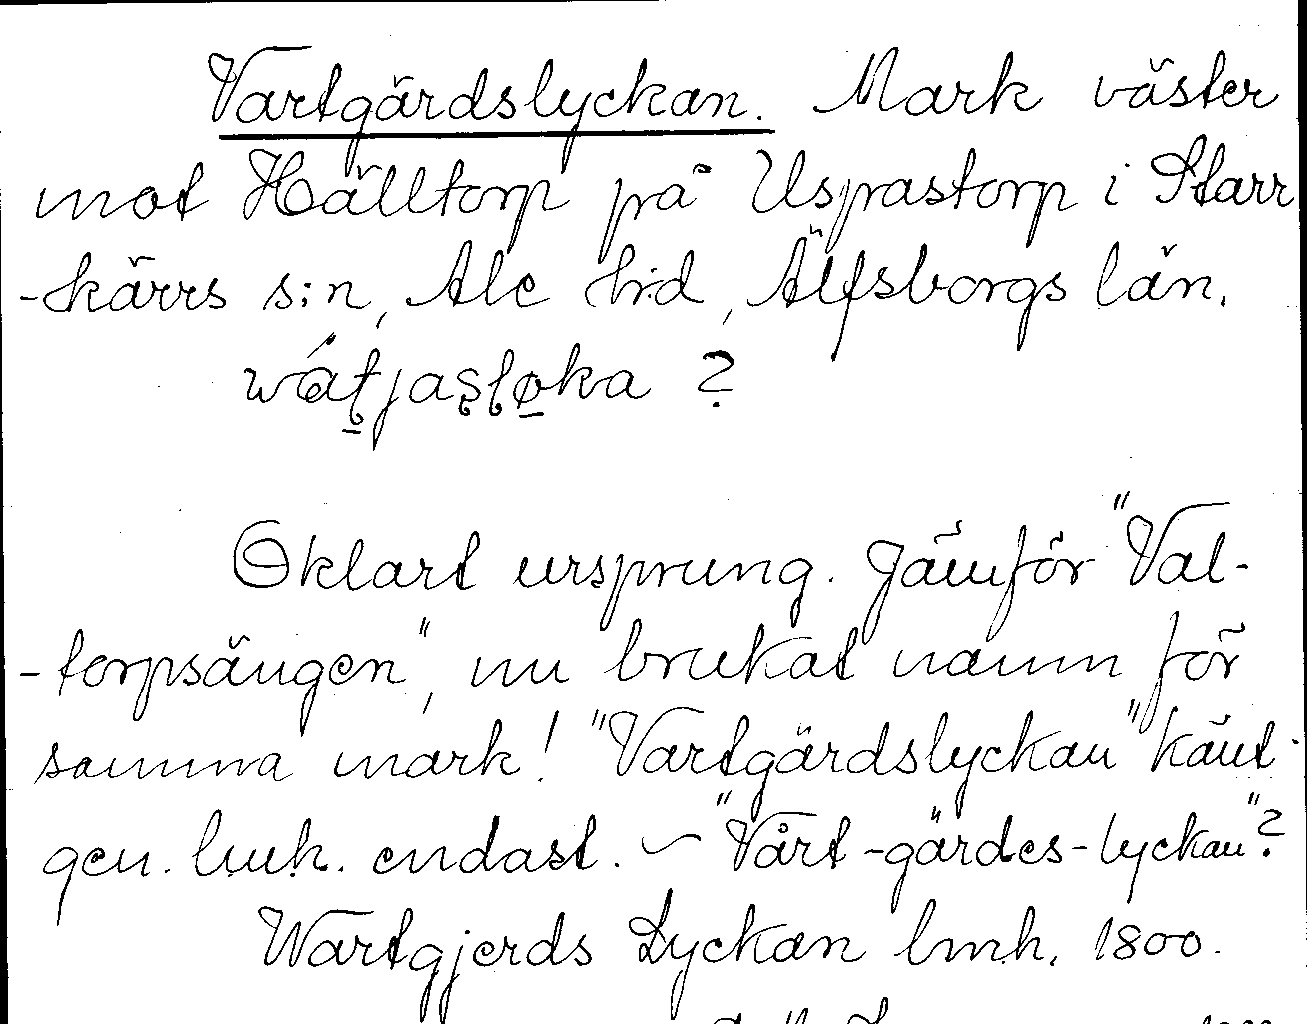 Vartgärdslyckan. Mark väster
mot Hälltorp på Uspastorp i Starr
-kärrs s:n, Ale h:d, Älfsborgs län.
wátjasloka ?
Oklart ursprung. Jämför "Val-
-torpsängen", nu brukat namn för
samma mark! "Vartgärdslyckan" känt
gen. lmh. endast. – "Vårt-gärdes-lyckan"?
Wartgjerds Lyckan lmh. 1800.